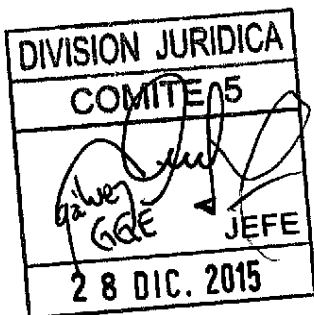 DIVISION JURIDICA
COMITE 5
GQE
JEFE
28 DIC. 2015